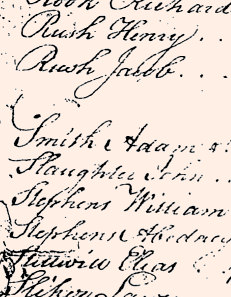 Rook Richard
Rush Henry . .
Rush Jacob . .
Smith Adam
Slaughter John . .
Stephens William
Stephens Abednego
Elias